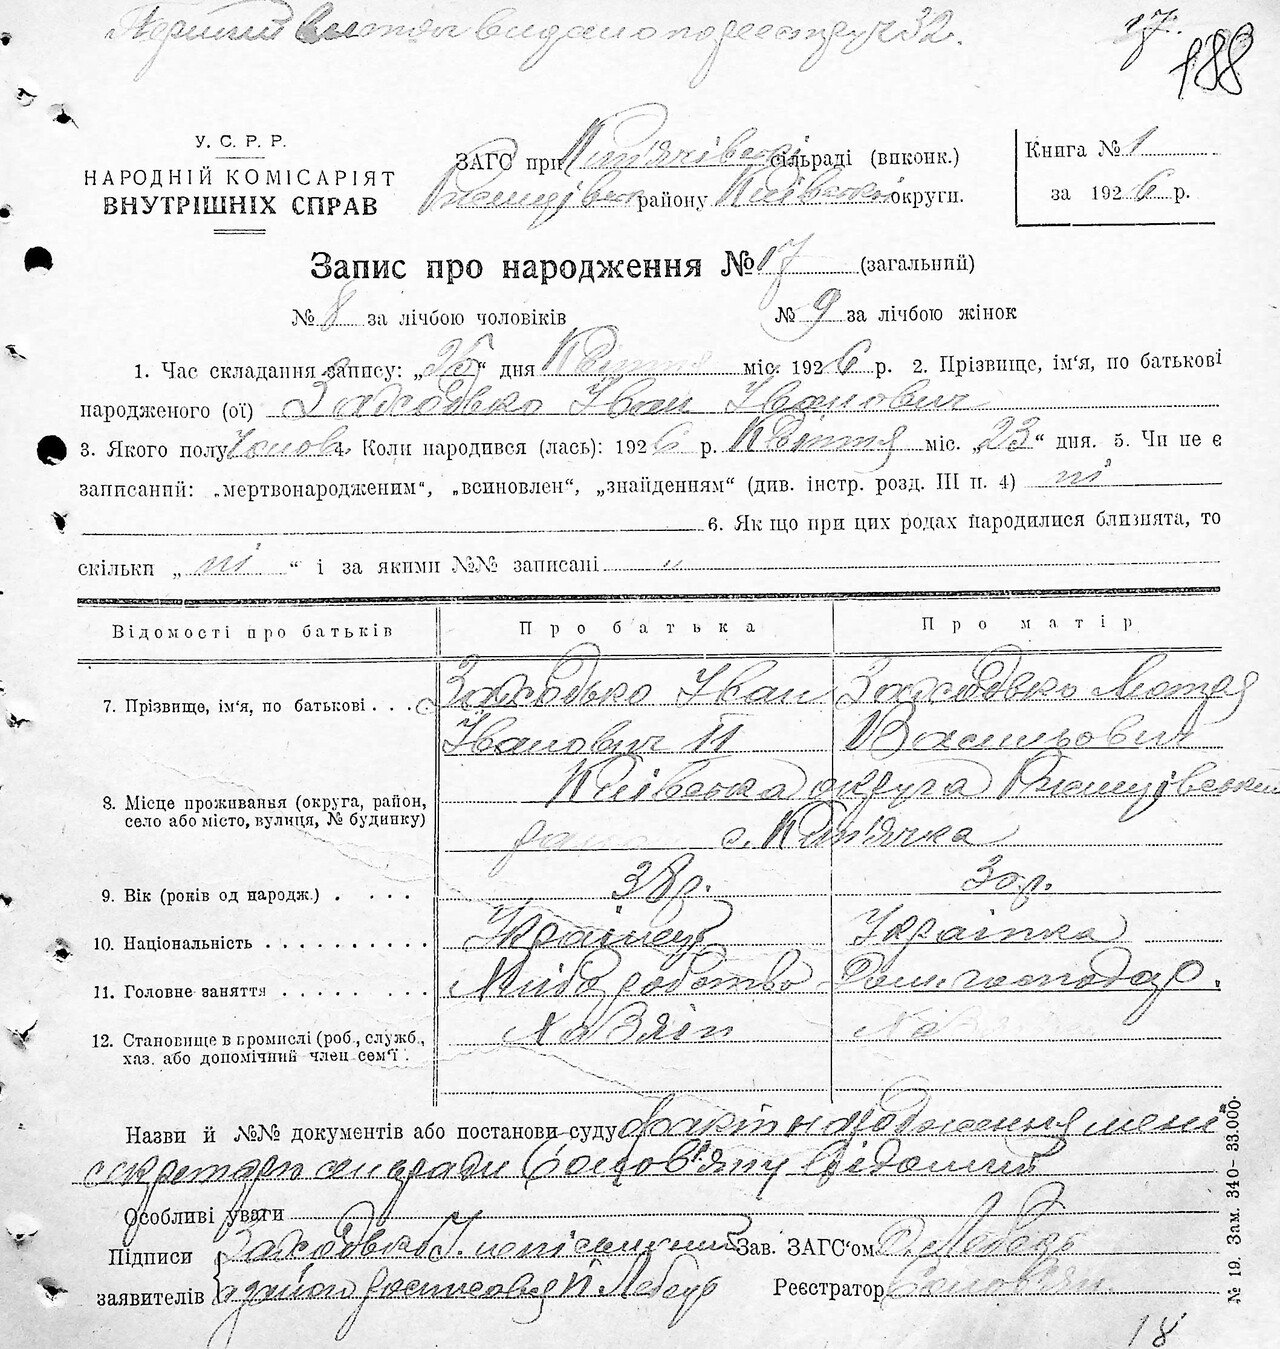 видано по реестру № 32.
17.
188
У. С. Р. Р.
НАРОДНІЙ КОМІСАРІЯТ
ВНУТРІШНІХ СПРАВ
ЗАГС при Кип'ячівській сільраді (виконк.)
району Київської округи.
Книга № 1
за 1926 р.
Запис про народження № 17 (загальний)
№ 8 за лічбою чоловіків № 9 за лічбою жінок
1. Час складання запису: „25“ дня Квітня міс. 1926 р. 2. Прізвище, ім'я, по батькові
народженого (ої) Заходько Іван Іванович
3. Якого полу чолов. 4. Коли народився (лась): 1926 р. Квітня міс. „23“ дня. 5. Чи не є
записаний: „мертвонародженим“, „всиновлен“, „знайденням“ (див. інстр. розд. III п. 4) ні
6. Як що при цих родах народилися близнята, то
скільки „ ні “ і за якими №№ записані "
Відомості про батьків Про батька Про матір
7. Прізвище, ім'я, по батькові . . . Заходько Іван Заходько Мотря
Іванович II
Київська округа
8. Місце проживання (округа, район,
село або місто, вулиця, № будинку)
с. Кип'ячка
9. Вік (років од народж.) . . . . 38 р. 30 р.
10. Національність . . . . . . . . . . Українець Українка
11. Головне заняття . . . . . . . . Хліборобство Дом. господар.
12. Становище в промислі (роб., служб.,
хаз. або допомічний член сем'ї . Хазяїн
Назви й №№ документів або постанови суду факт народження мені
секретарю сільради Соловʼяну відомий
Особливі уваги
Підписи Заходько І. неписьменний Зав. ЗАГС'ом Лебедь
заявителів Й Лебедь Реєстратор Соловʼян
№ 19. Зам. 340–33.000.
18